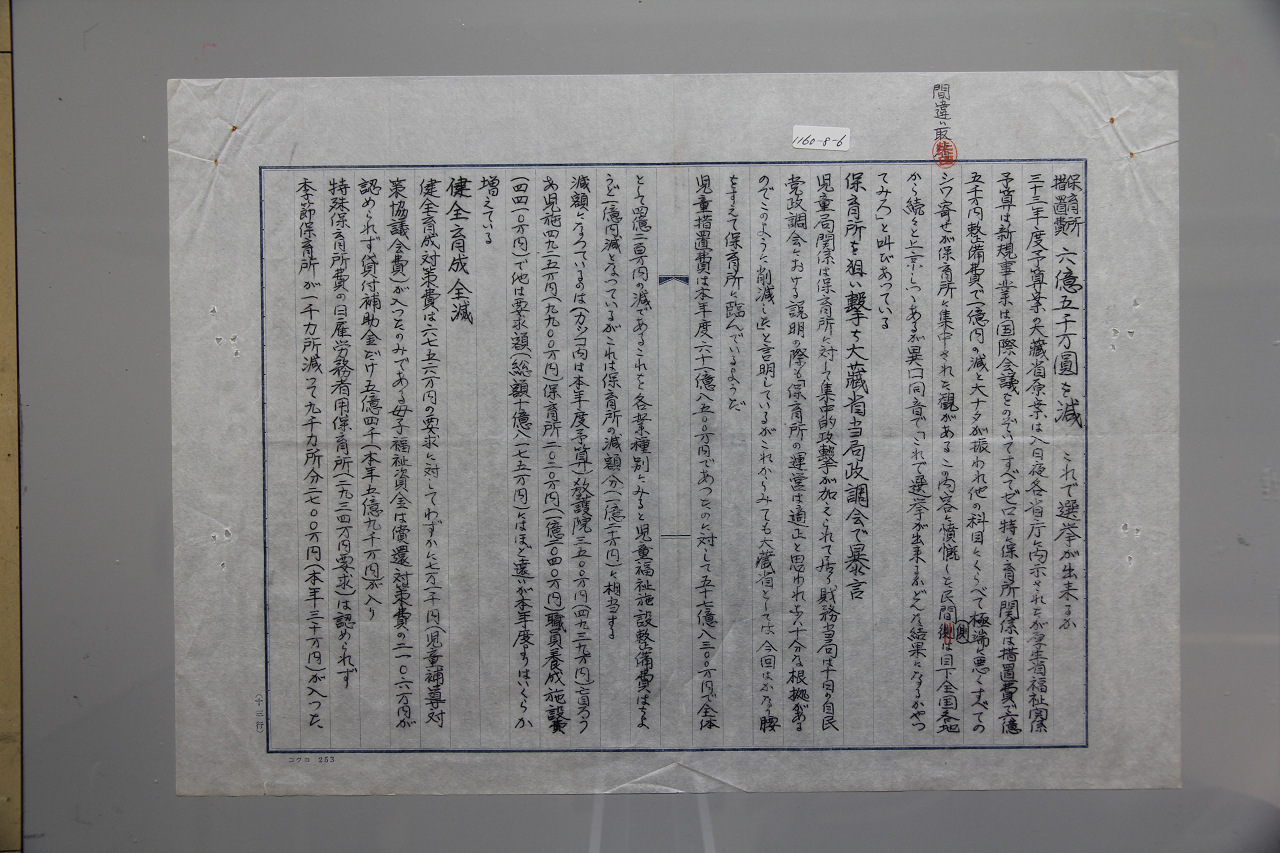 間違い取
1160-8-6
保育所措置費 六億五千万圓を減 これで選挙が出来るか
三十三年度予算案の大蔵省原案は八日夜各省庁に内示されたが厚生省福祉関係
予算は新規事業は国際会議をのぞいてすべてゼロ特に保育所関係は措置費で六億
五千万円整備費で一億円の減と大ナタが振われ他の科目にくらべて極端に悪くすべての
シワ寄せが保育所に集中された観があるこの内容に憤慨した民間側は目下全国各地
側
から続々と上京しつゝあるが異口同音で「これで選挙が出来るかどんな結果になるかやつ
てみろ」と叫びあっている
保育所を狙い撃ち大蔵省当局政調会で暴言
児童局関係は保育所に対して集中的攻撃が加えられて居り財務当局は十日の自民
党政調会における説明の際も「保育所の運営は適正と思われない十分な根拠がある
のでこのように削減した」と言明しているがこれからみても大蔵省としては今回はかなり腰
をすえて保育所に臨んでいるようだ
児童措置費は本年度六十一億八五〇〇万円であつたのに対して五十七億八三〇〇万円で全体
として四億二百万円の減であるこれを各業種別にみると児童福祉施設整備費はちよ
うど一億円減となつているがこれは保育所の減額分(一億二千万円)に相当する
減額になつているのは(カツコ内は本年度予算)教護院三五〇〇万円(四九三九万円)盲ろう
あ児施四九二五万円(九九〇〇万円)保育所二〇二〇万円(一億二〇四〇万円)職員養成施設費
(四四一〇万円)で他は要求額(総額十億八一七五万円)にはほど遠いが本年度よりはいくらか
増えている
健全育成全滅
健全育成対策費は六七五六万円の要求に対してわずかに七万一千円(児童補導対
策協議会費)が入つたのみである母子福祉資金は償還対策費の二一〇六万円が
認められず貸付補助金だけ五億四千(本年五億九千万円)が入り
特殊保育所費の日雇労務者用保育所(二九三四万円要求)は認められず
季節保育所が一千カ所減つて九千カ所分二七〇〇万円(本年三千万円)が入つた
(十三行)
コクヨ 253